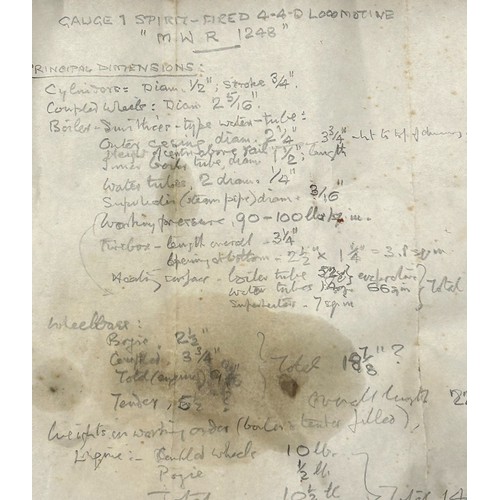 GAUGE 1 SPIRIT-FIRED 4-4-0 LOCOMOTIVE
"M.W.R 1248"
PRINCIPAL DIMENSIONS:
Cylinders: Diam. 1/2"; Stroke 3/4".
Coupled Wheels: Diam 2 5/16".
Boiler - Smithies-type water-tube:
Outer casing diam. 2 1/4" 3 3/4" - ht to top of
Height of centre above rail
Inner boiler tube, diam 1 1/2"; Length
Water tubes, 2 diam. 1/4"
Superheater (steam pipe) diam. 3/16"
Working pressure, 90-100 lbs/sq.in.
Firebox - length overall - 3 1/4"
Opening at bottom - 2 1/2" x 1 = 3.8 sq in
Heating surface - boiler tube evaporative
Water tubes 66 sq in } Total
Superheaters - 7 sq in
Wheelbase:
Bogie, 2 1/2"
Coupled 3 3/4"
Total (engine) } Total 18 7/8" ?
Tender, 5 1/2 ? overall length 22
Weights in working order (boiler & tender filled),
Engine:- Coupled wheels 10 lb.
Bogie 1/2 lb.
Total 10 1/2 lb 14